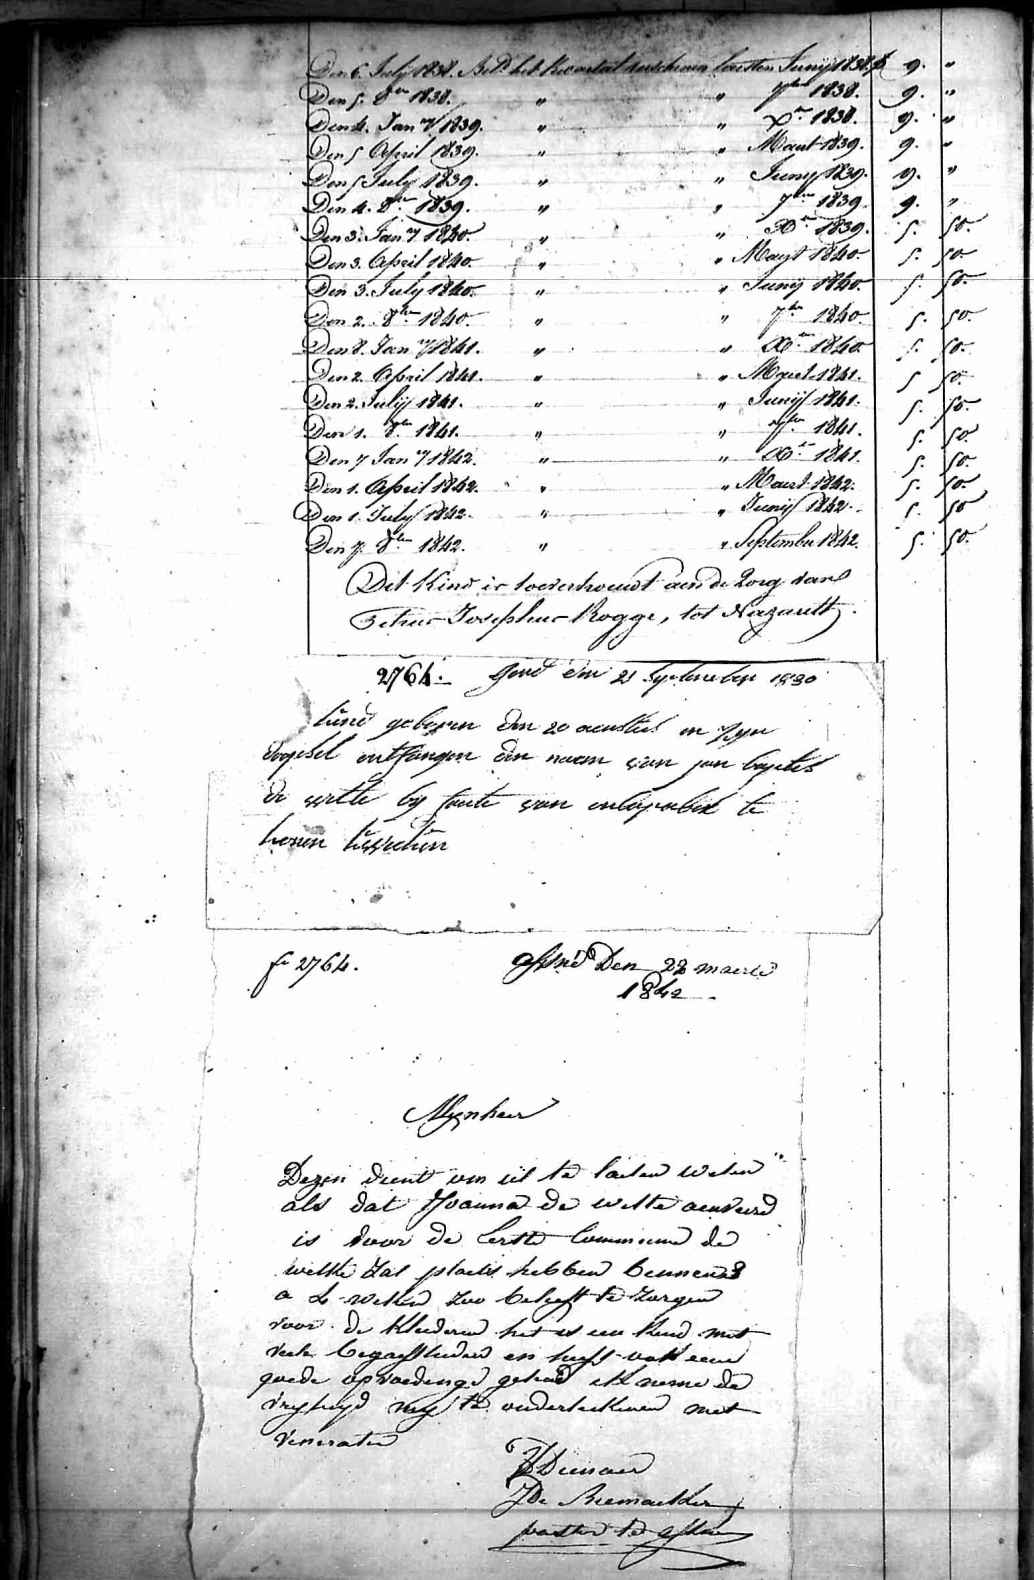 Den 6. July 1838. Bet.d het Kwartael verschenen laesten Junij 1838. f 9. "
Den 5. 8ber 1838. " " 7ber 1838. 9. "
Den 4. Jan.y 1839. " " Xber 1838. 9. "
Den 5 April 1839. " " Maert 1839. 9. "
Den 5 July 1839. " " Junij 1839. 9. "
Den 4. 8ber 1839. " " 7ber 1839. 9. "
Den 3. Jan.y 1840. " " Xber 1839. 5. 50.
Den 3. April 1840. " " Maert 1840. 5. 50
Den 3. July 1840. " " Junij 1840. 5. 50.
Den 2. 8ber 1840. " " 7ber 1840. 5. 50.
Den 8. Jan.y 1841. " " Xber 1840. 5. 50.
Den 2. April 1841. " " Maert 1841. 5 50.
Den 2. Julij 1841. " " Junij 1841. 5. 50.
Den 1. 8ber 1841. " " 7ber 1841. 5. 50.
Den 7 Jan.y 1842. " " Xber 1841. 5. 50.
Den 1. April 1842. " " Maert 1842. 5. 50.
Den 1. July 1842. " " Junij 1842. 5. 50
Den 7. 8ber 1842. " " September 1842. 5. 50.
Dit Kind is toevertrouwt aen de zorg van
Petrus Josephus Rogge, tot Nazareth.
2764. Gend den 21 September 1830
kind geboren den 20 aeustus en zyn
doopsel ontfangen den naem van jan baptis
de witte by faute van
te
f.o 2764. Assené Den 22 maerte
1842
Mynheer
Dezen dient om ul te laeten weten
als dat Joanna de witte aenveird
is voor de Eerste Commune de
welke zal plaets hebben bennens
a 4 weken zoo beleeft te zorgen
voor de Kleederen het is een kind met
veele begaeftheden en heeft ook eene
goede opvoedinge gehad ik neme de
vryheyd my te onderteekenen met
veneratie
UDienaer
J De
pastor te Assene